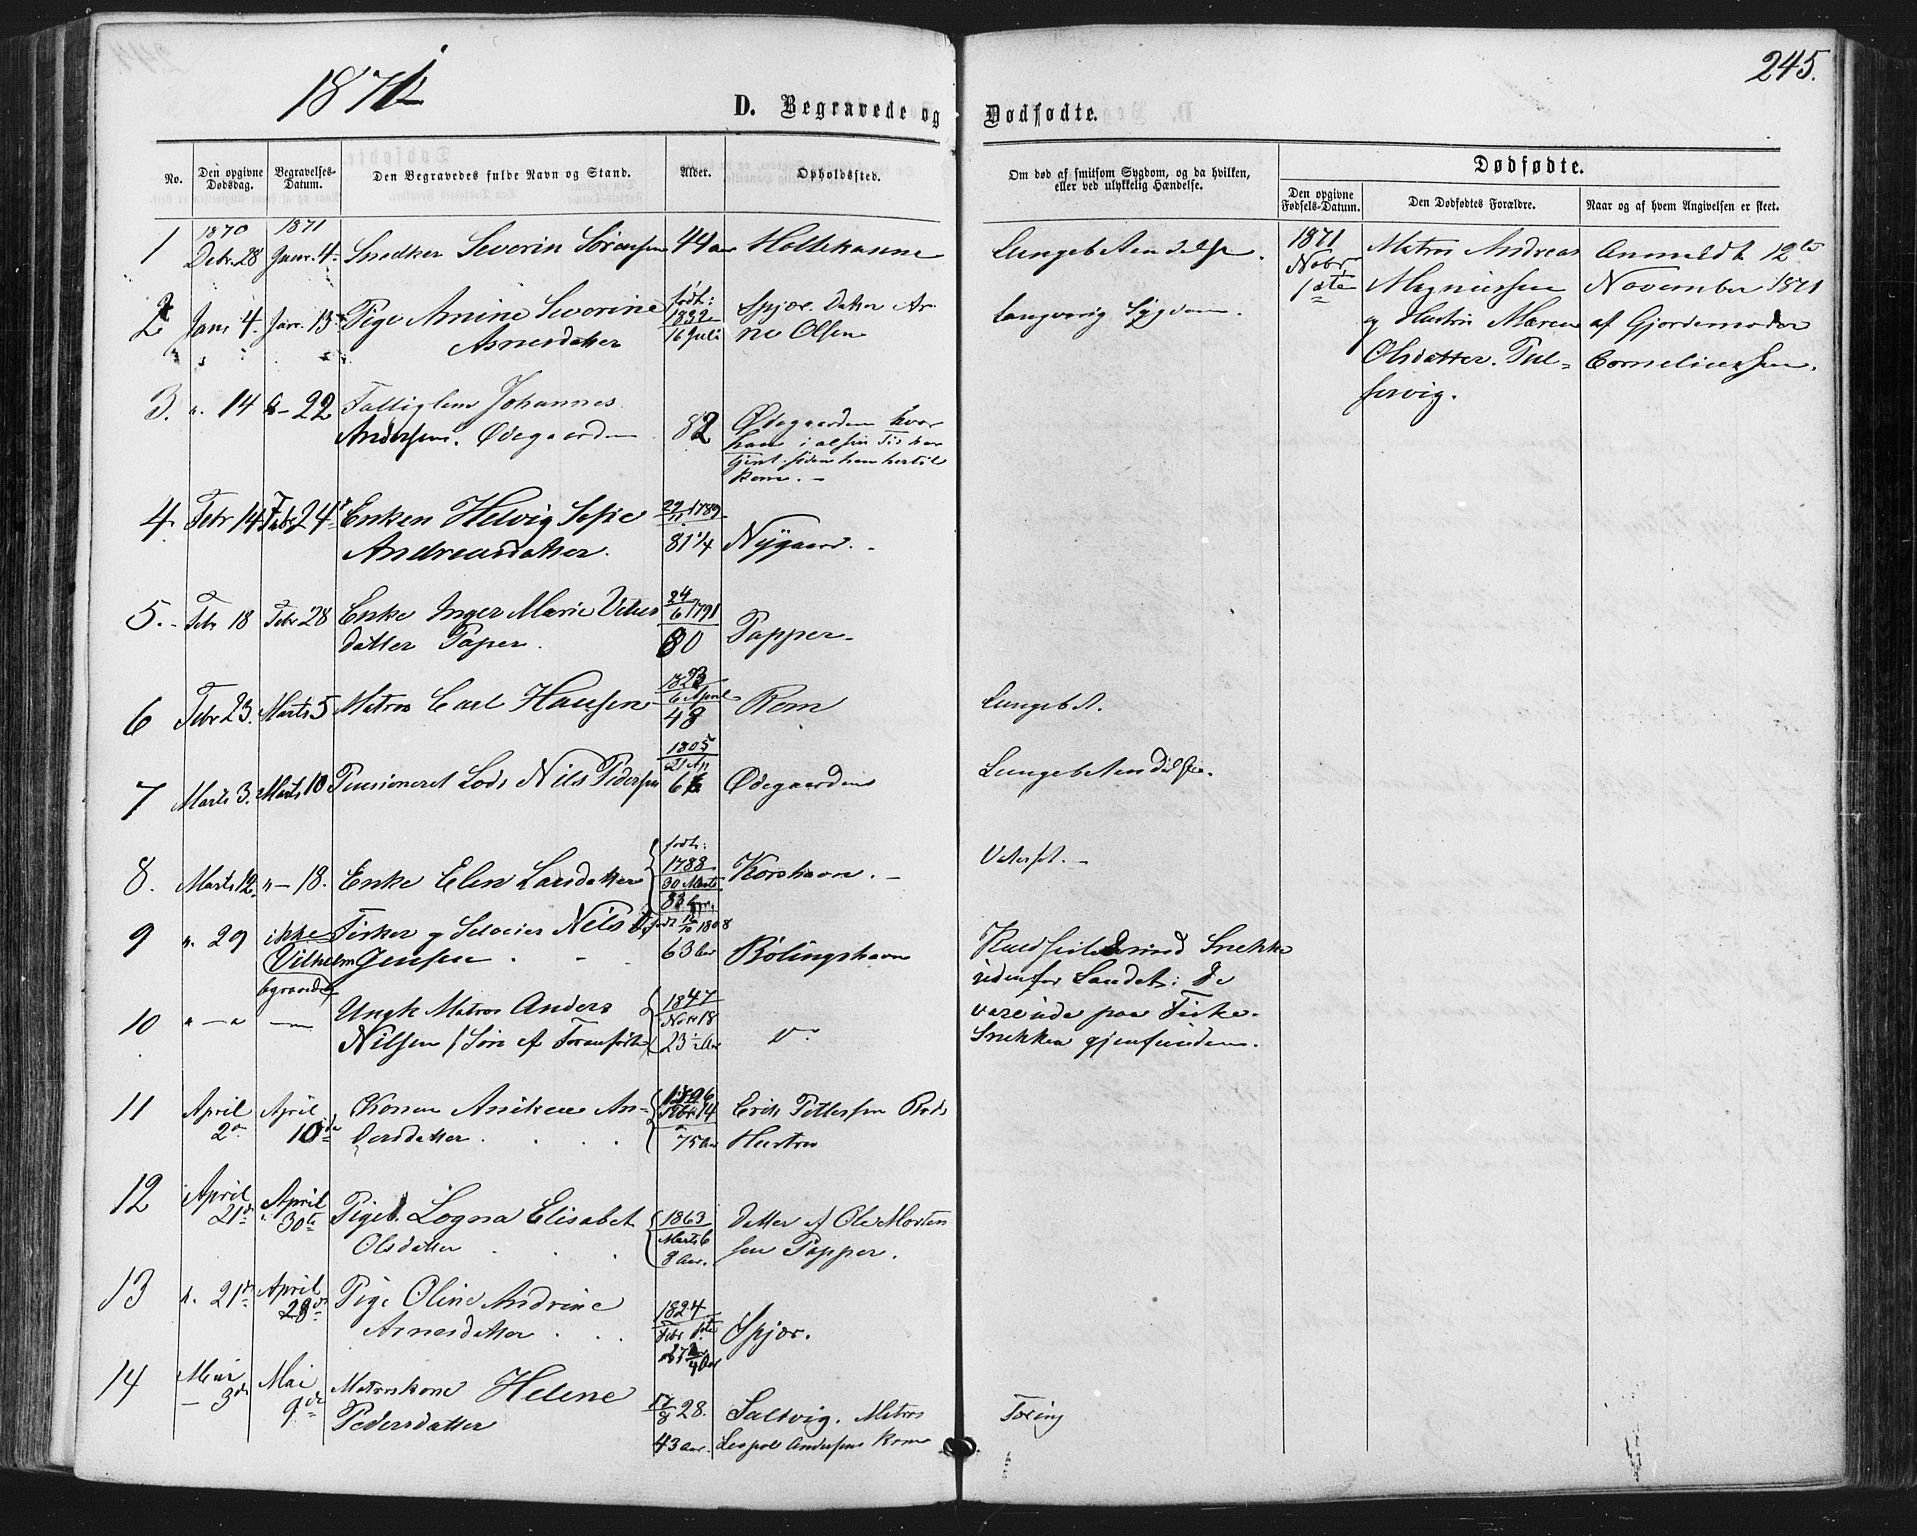 1871
245.
D. Begravede og Dødfødte.
No.
Den opgivne Dødsdag.
Begravelses-Datum.
Den Begravedes fulde Navn og Stand.
Alder.
Opholdssted.
Om død af smitsom Sygdom, og da hvilken,
eller ved ulykkelig Hændelse.
Dødfødte.
Den opgivne Fødsels-Datum.
Den Dødfødtes Forældre.
Naar og af hvem Angivelsen er skeet.
1870 1871
1 Debr. 28 Janr. 4 Snedker Severin Sørensen 44 aar Holtekanne
Lungebetændelse.
2 Janr 4. Janr. 13 Pige Arnine Severine
Arnesdatter
født: 1832 16 Juli
Spjær. Datter Ar
ne Olsen
Langvarig Sygdom.
3. " 14 " - 22 Fattiglem Johannes
Andersen. Ødegaarden
82
Ødegaarden hvor
han i al sin Tid har
tjent siden han hertil
kom. -
4. Febr 14 Febr 24 Enken Helvig Sofie
Andreasdatter.
22/11 1789
81 1/4
Nygaard.
5. Febr 18 Febr 28 Enke Inger Marie Vetus
datter Paper.
24/6 1791
80
Papper
6 Febr 23. Marts 5 Matros Carl Hansen
1823
6 April
48
Rom
Lungebet.
7 Marts 3. Marts 10 Pensioneret Lods Nils Pedersen
1805
21 Ap
66
Ødegaarden
Lungebetændelse.
8. Marts 12 " - 18. Enke Elen Larsdatter
født:
1788
30 Marts
83 Aar.
Korshavn. -
Vatersot. -
9 " 29 ikke
begravede
Fisker og Selveier Nils
Vilhelm Jensen
1808
63 Aar
Bølingshavn
Kuldseilet med Snekke
udenfor Landet: De
vare ude paa Fiske.
Snekken gjenfunden.
10 " - " Ungk Matros Anders
Nilsen / Søn af Foranførte
1847
Novr 18
23 1/2 Aar
11 April 2 April 10de Konen Aniken An-
dersdatter
1796
14
75 Aar
Erik Pettersen Røds
Hustru
12 April 21de April 30te Pigeb. Logna Elisabet
Olsdatter
1863
Marts 6
8 Aar.
Datter af Ole Morten
sen Papper.
13 " 21de April 28de Pige Oline Andrine
Arnesdatter
1824
Febr 1ste
Spjær.
14 Mai 3de Mai 9de Matroskone Helene
Pedersdatter
17/8 28.
43 aar.
Saltvig. Matros
Leopol Andersens Kone
Tæring
1871
Nobr
1ste
Matros Andreas
Magnussen
og Hustru Maren
Olsdatter.
Anmeldt 12te
November 1871
af Gjordemoder
Corneliussen.